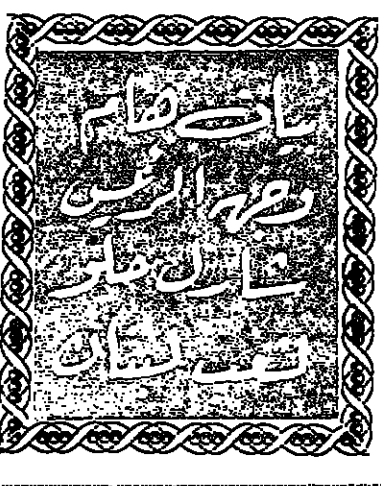 بيان هام
وجهه الرئيس
شارل حلو
لشعب لبنان